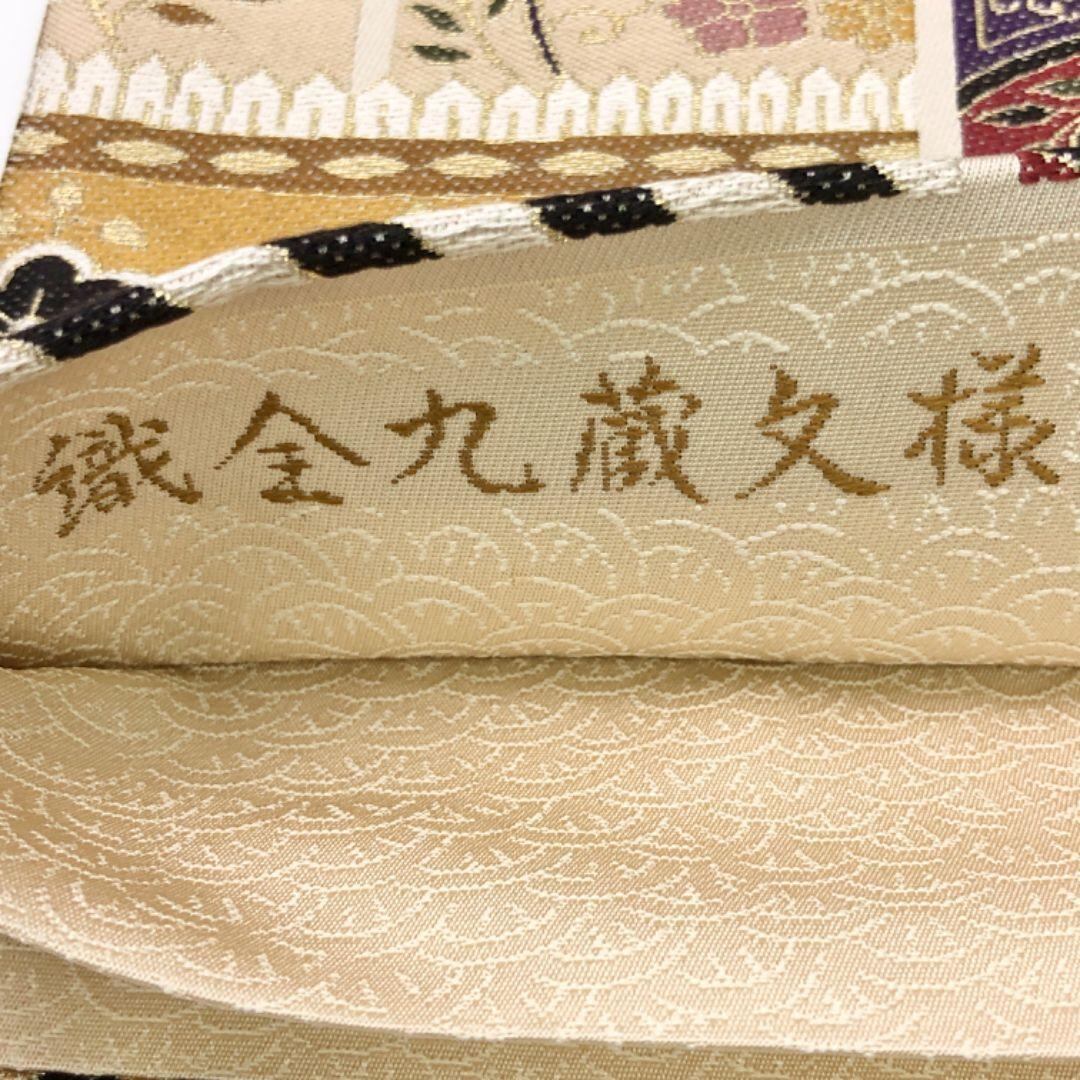 織全九蔵文様